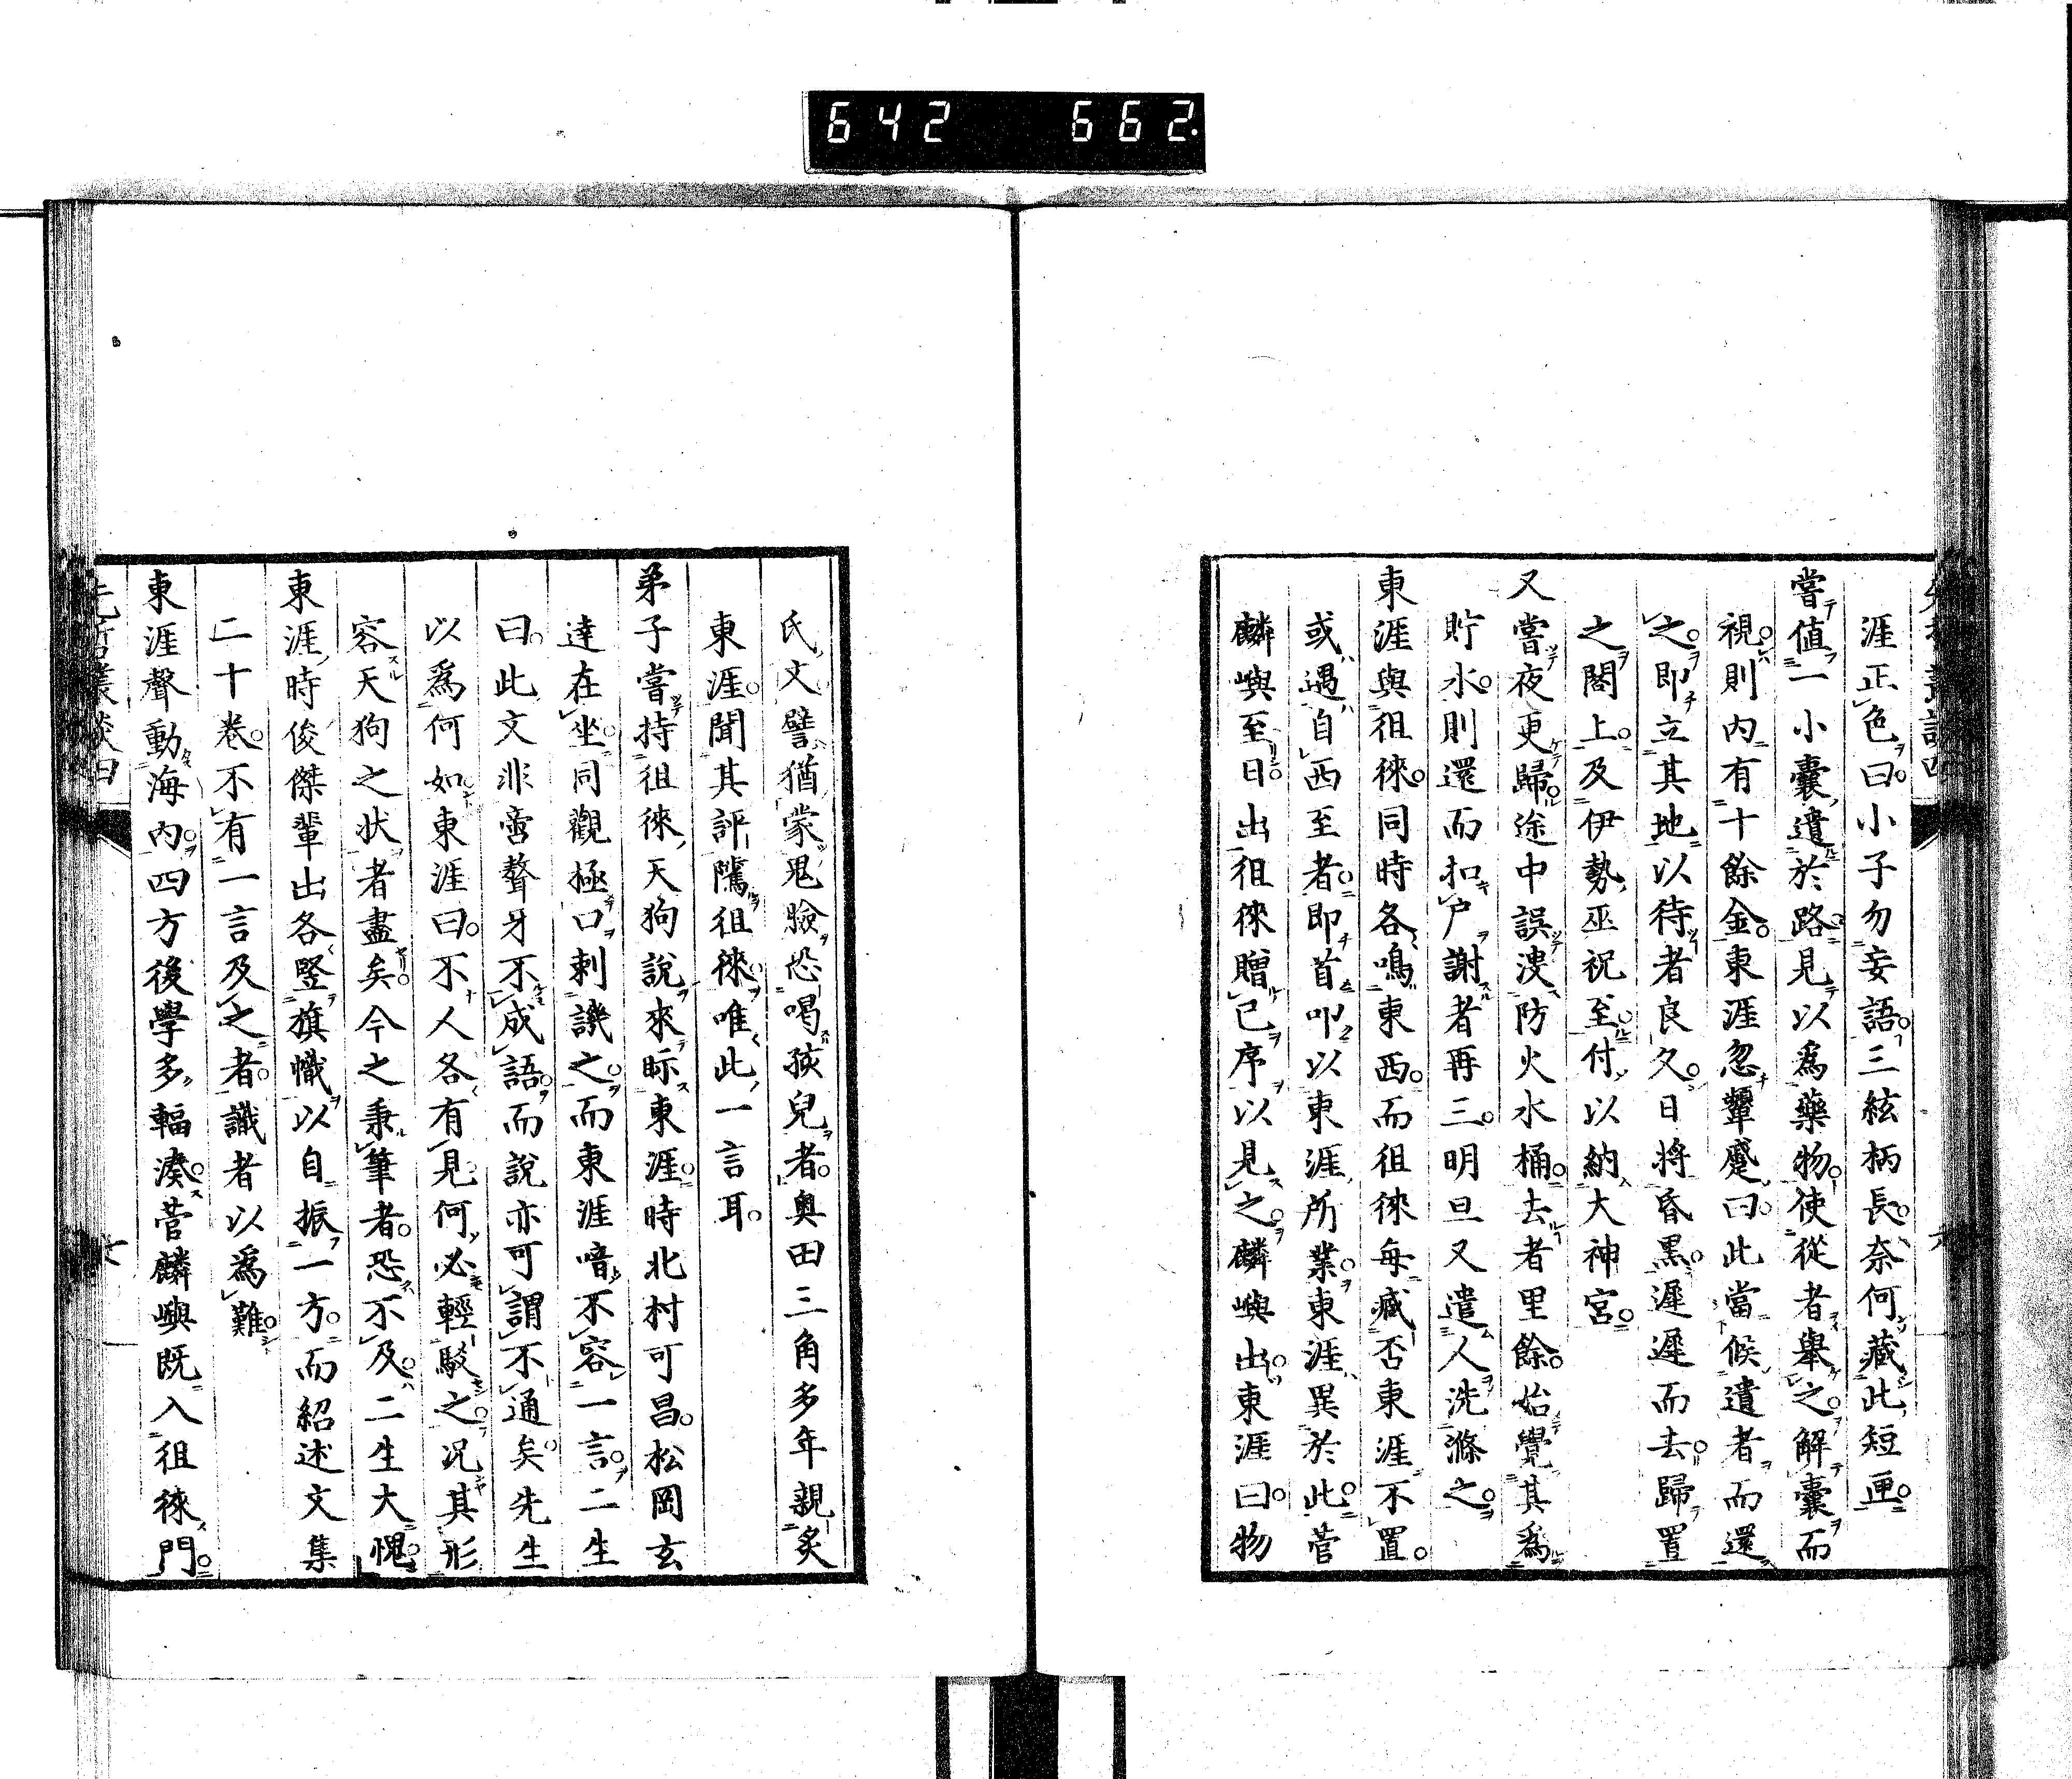 642 662.
涯正色曰小子勿妄語三絃柄長奈何藏此短匣
嘗値一小囊遺於路見以爲藥物使從者擧之解囊而
視則内有十餘金東涯忽顰蹙曰此當候遺者而還
之即立其地以待者良久日將昏黒遲遲而去歸置
之閣上及伊勢巫祝至付以納大神宮
又嘗夜更歸途中誤洩防火水桶去者里餘始覺其爲
貯水則還而扣戸謝者再三明旦又遣人洗滌之
東涯與徂徠同時各鳴東西而徂徠毎臧否東涯不置
或遇自西至者即首叩以東涯所業東涯異於此菅
麟嶼至日出徂徠贈己序以見之麟嶼出東涯曰物
氏文譬猶蒙鬼臉恐喝孩兒者奥田三角多年親炙
東涯聞其評隲徂徠唯此一言耳
弟子嘗持徂徠天狗説來眎東涯時北村可昌松岡玄
達在坐同觀極口刺譏之而東涯喑不容一言二生
曰此文非啻聱牙不成語而説亦可謂不通矣先生
以爲何如東涯曰不人各有見何必輕駁之况其形
容天狗之状者盡矣今之秉筆者恐不及二生大愧
東涯時俊傑輩出各竪旗幟以自振一方而紹述文集
二十卷不有一言及之者識者以爲難
東涯聲動海内四方後學多輻湊菅麟嶼既入徂徠門
先哲叢談四